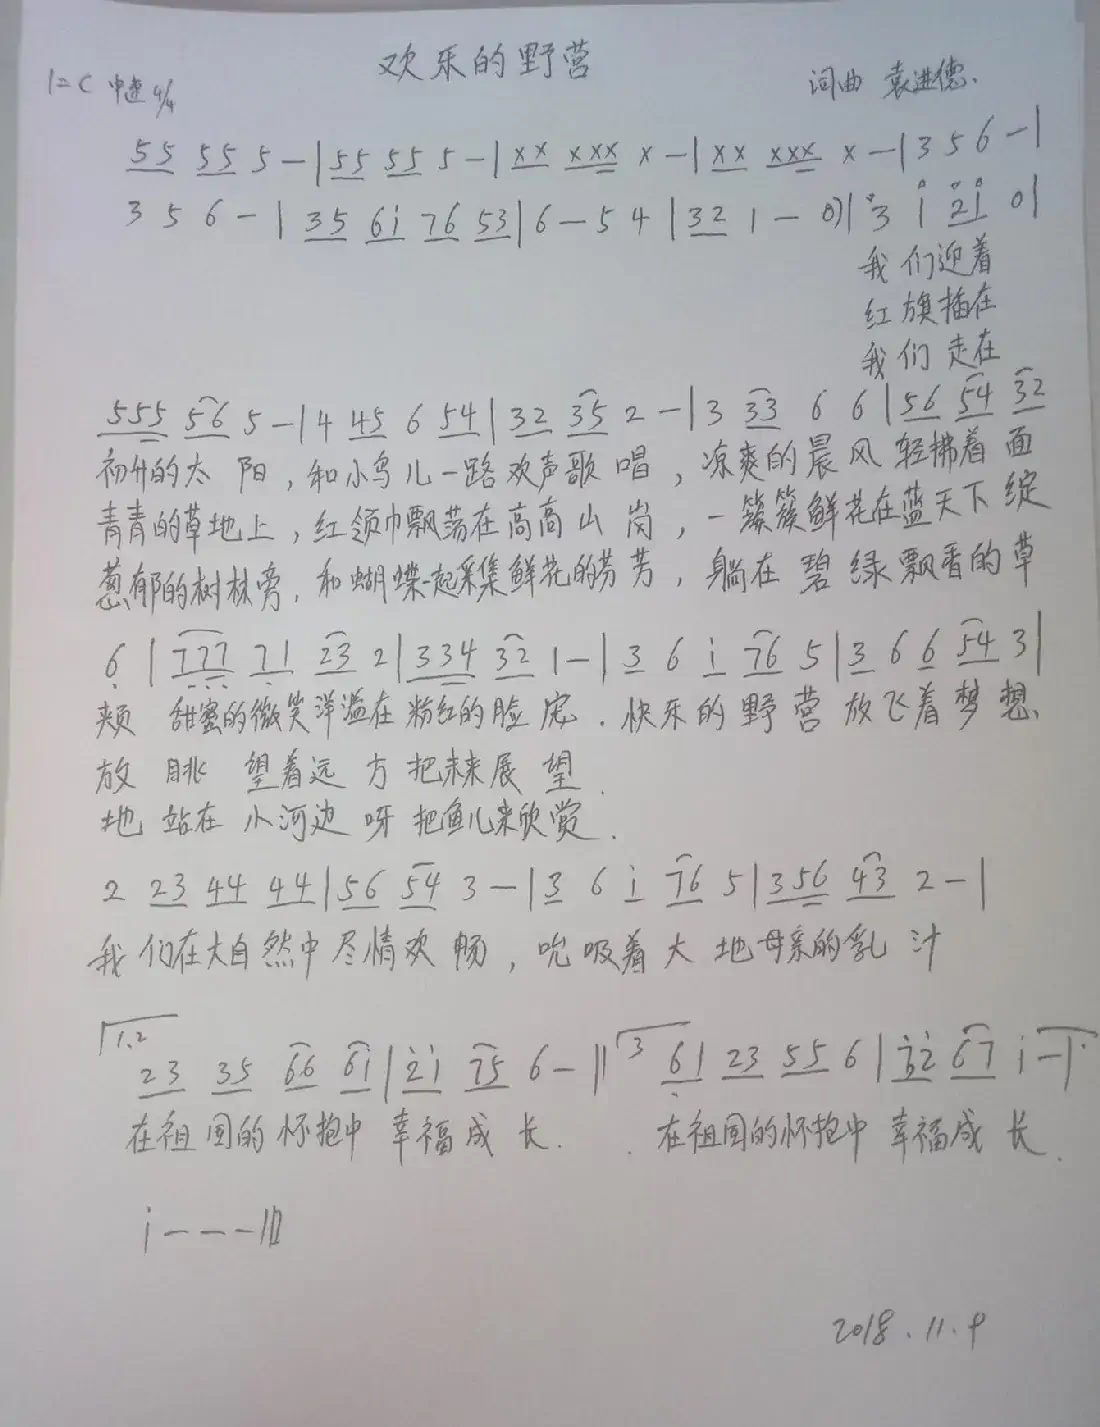 欢乐的野营
1=C 中速 4/4
词曲 袁进德.
55 55 5 - | 55 55 5 - | xx xxx x - | xx xxx x - | 3 5 6 - |
3 5 6 - | 35 6i 76 53 | 6 - 5 4 | 32 1 - 0) | 3 i 2i 0 |
我们迎着
红旗插在
我们走在
555 56 5 - | 4 45 6 54 | 32 35 2 - | 3 33 6 6 | 56 54 32
初升的太阳,和小鸟儿一路欢声歌唱,凉爽的晨风轻拂着面
青青的草地上,红领巾飘荡在高高山岗,一簇簇鲜花在蓝天下绽
葱郁的树林旁,和蝴蝶一起采集鲜花的芬芳,躺在碧绿飘香的草
6 | 777 71 23 2 | 334 32 1 - | 3 6 i 76 5 | 3 6 6 54 3 |
颊 甜蜜的微笑洋溢在粉红的脸庞.快乐的野营放飞着梦想
放 眺望着远方把未来展望.
地 站在小河边呀把鱼儿来欣赏.
2 23 44 44 | 56 54 3 - | 3 6 i 76 5 | 356 43 2 - |
我们在大自然中尽情欢畅,吮吸着大地母亲的乳汁
1.2 23 35 66 6i | 2i 75 6 - || 3 61 23 55 6 | 32 67 i - |
在祖国的怀抱中幸福成长. 在祖国的怀抱中幸福成长.
i - - - ||
2018.11.9